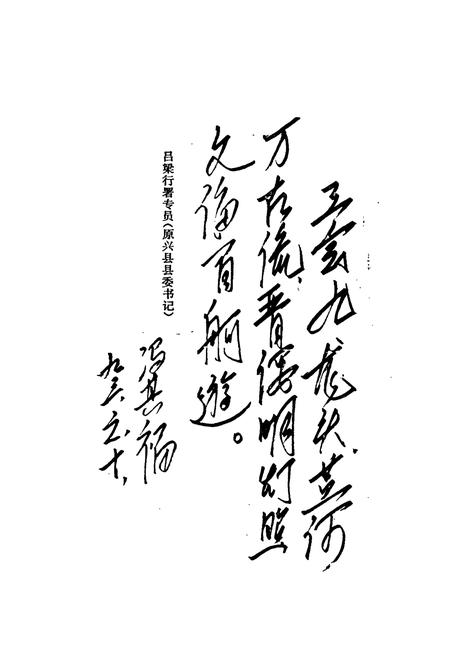 会九龙头、黄河
万古流，晋绥明灯照
文海百舸游。
吕梁行署专员（原兴县县委书记）
冯其福
九三、六、十、